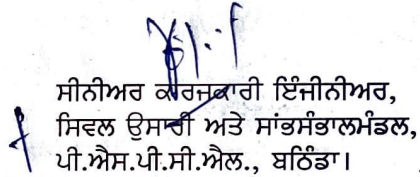 ਸੀਨੀਅਰ ਕਾਰਜਕਾਰੀ ਇੰਜੀਨੀਅਰ,
ਸਿਵਲ ਉਸਾਰੀ ਅਤੇ ਸਾਂਭਸੰਭਾਲਮੰਡਲ,
ਪੀ.ਐਸ.ਪੀ.ਸੀ.ਐਲ., ਬਠਿੰਡਾ।